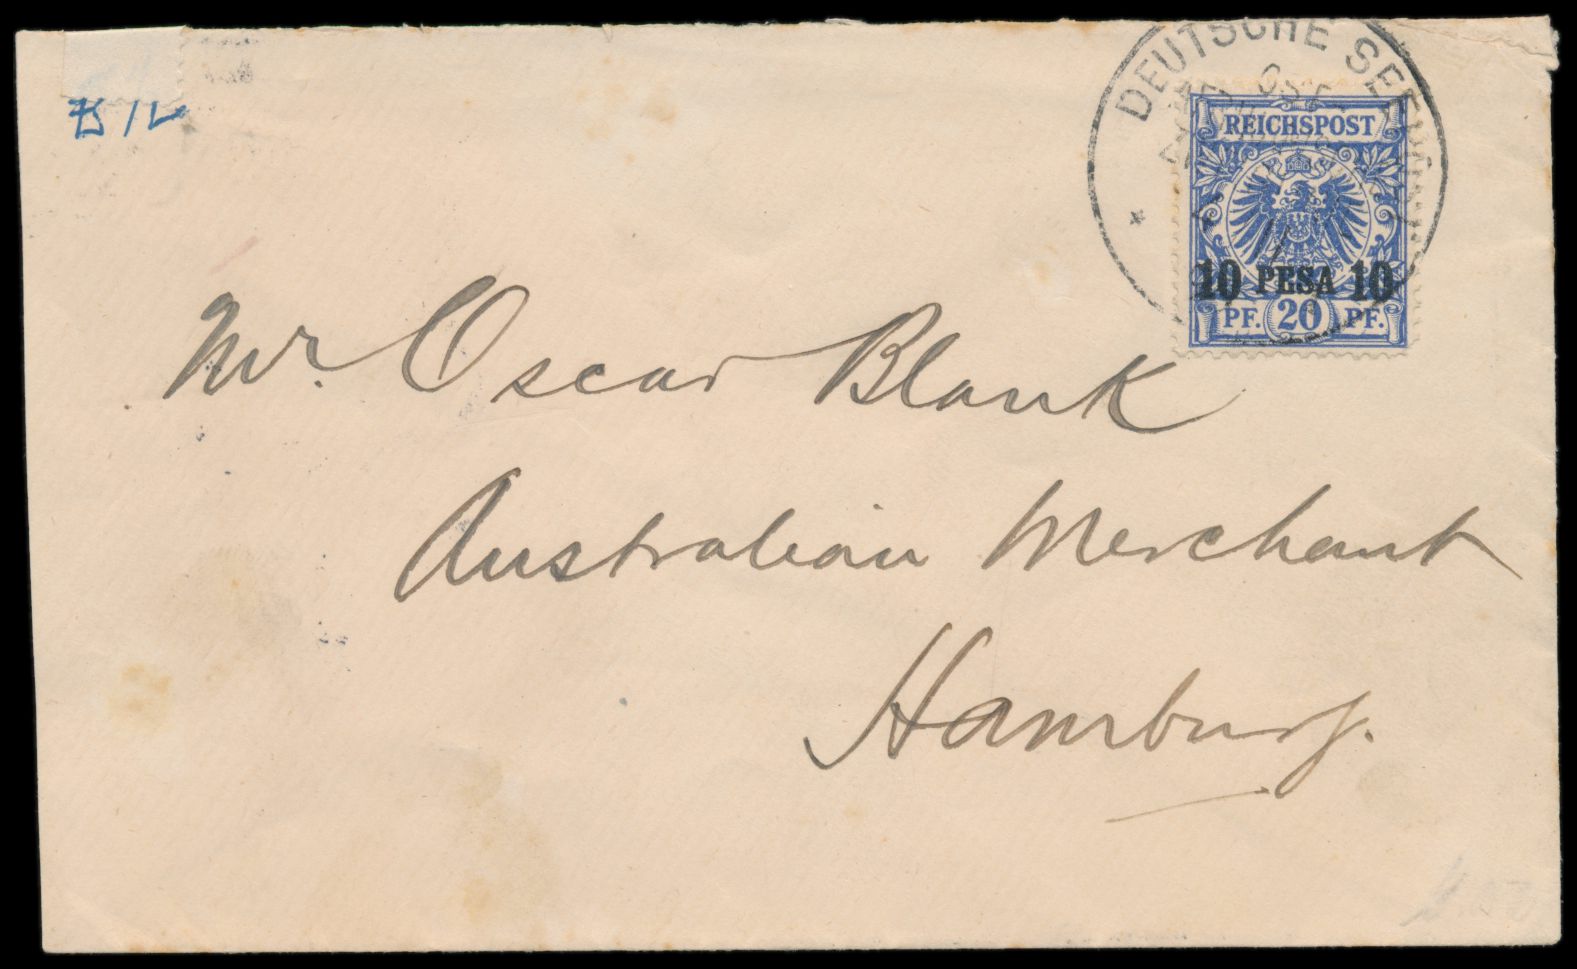 DEUTSCHE SEEPOST
REICHSPOST
10 PESA 10
PF. 20 PF.
Mr. Oscar Blank
Australian Merchant
Hamburg.